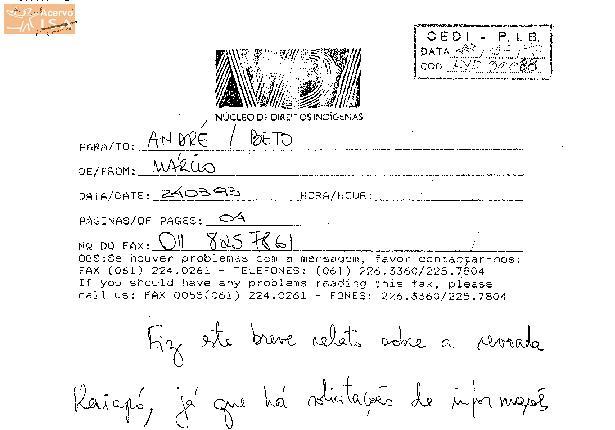 Acervo
ISA
CEDI - P.I.B.
DATA
COD
NDI
NÚCLEO DE DIREITOS INDÍGENAS
PARA/TO: ANDRÉ / BETO
DE/FROM: MÁRCIO
DATA/DATE: 240393 HORA/HOUR:
PÁGINAS/OF PAGES: 04
NR DO FAX: 011 825 7861
OBS:Se houver problemas com a mensagem, favor contactar-nos:
FAX (061) 224.0261 - TELEFONES: (061) 226.3360/225.7804
If you should have any problems reading this fax, please
call us: FAX 0055(061) 224.0261 - FONES: 226.3360/225.7804
Fiz este breve relato sobre a
Kaiapó, já que há solicitações de informações